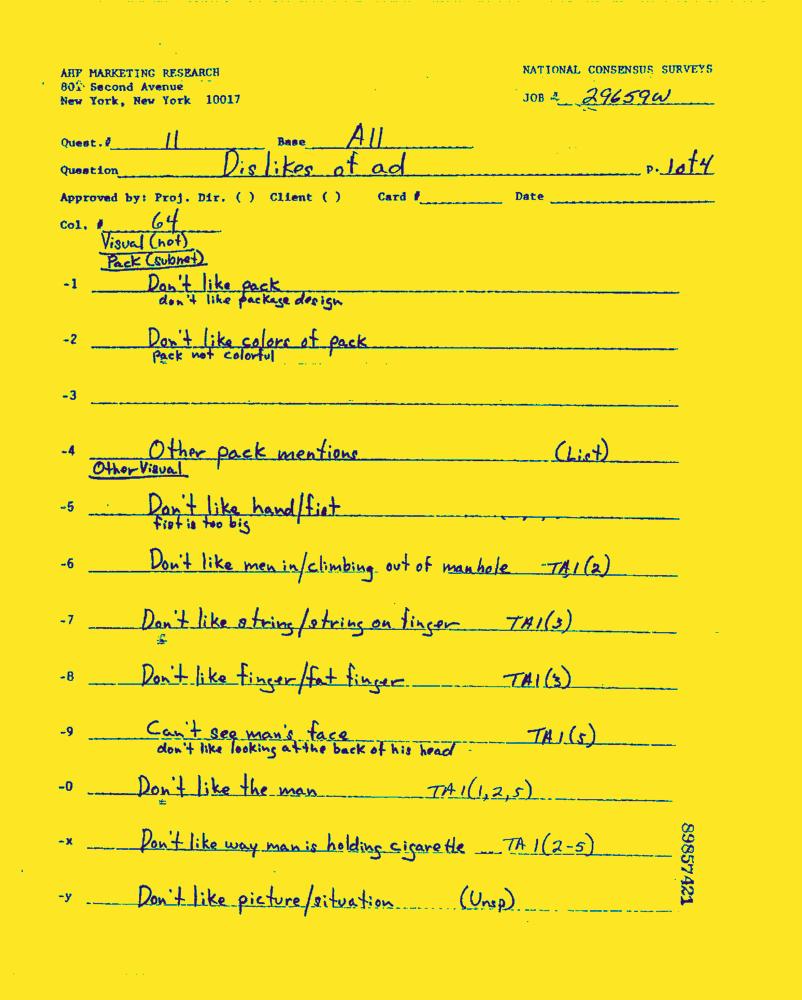 AHF MARKETING RESEARCH
801 Second Avenue
New York, New York 10017
NATIONAL CONSENSUS SURVEYS
JOB # 29659W
Quest.# 11 Base All
Question Dislikes of ad p. 1 of 4
Approved by: Proj. Dir. ( ) Client ( ) Card # Date
Col. # 64
Visual (net)
Pack (subnet)
-1 Don't like pack
don't like package design
-2 Don't like colors of pack
Pack not colorful
-3
-4 Other pack mentions (List)
Other Visual
-5 Don't like hand/fist
fist is too big
-6 Don't like men in/climbing out of manhole TA1(2)
-7 Don't like string/string on finger TA1(3)
-8 Don't like finger/fat finger TA1(3)
-9 Can't see man's face TA1(5)
don't like looking at the back of his head
-0 Don't like the man TA1(1,2,5)
-x Don't like way man is holding cigarette TA1(2-5)
-y Don't like picture/situation (Unsp)
89857421